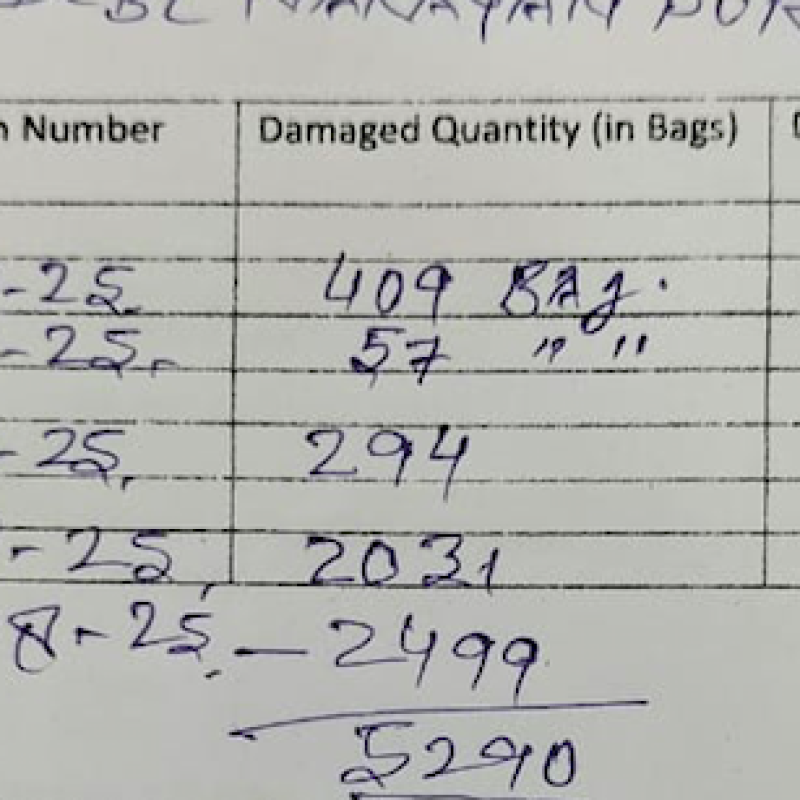 Number Damaged Quantity (in Bags)
-25. 409 BAg.
-25. 57 " "
-25. 294
-25. 2031
8-25. - 2499
5290